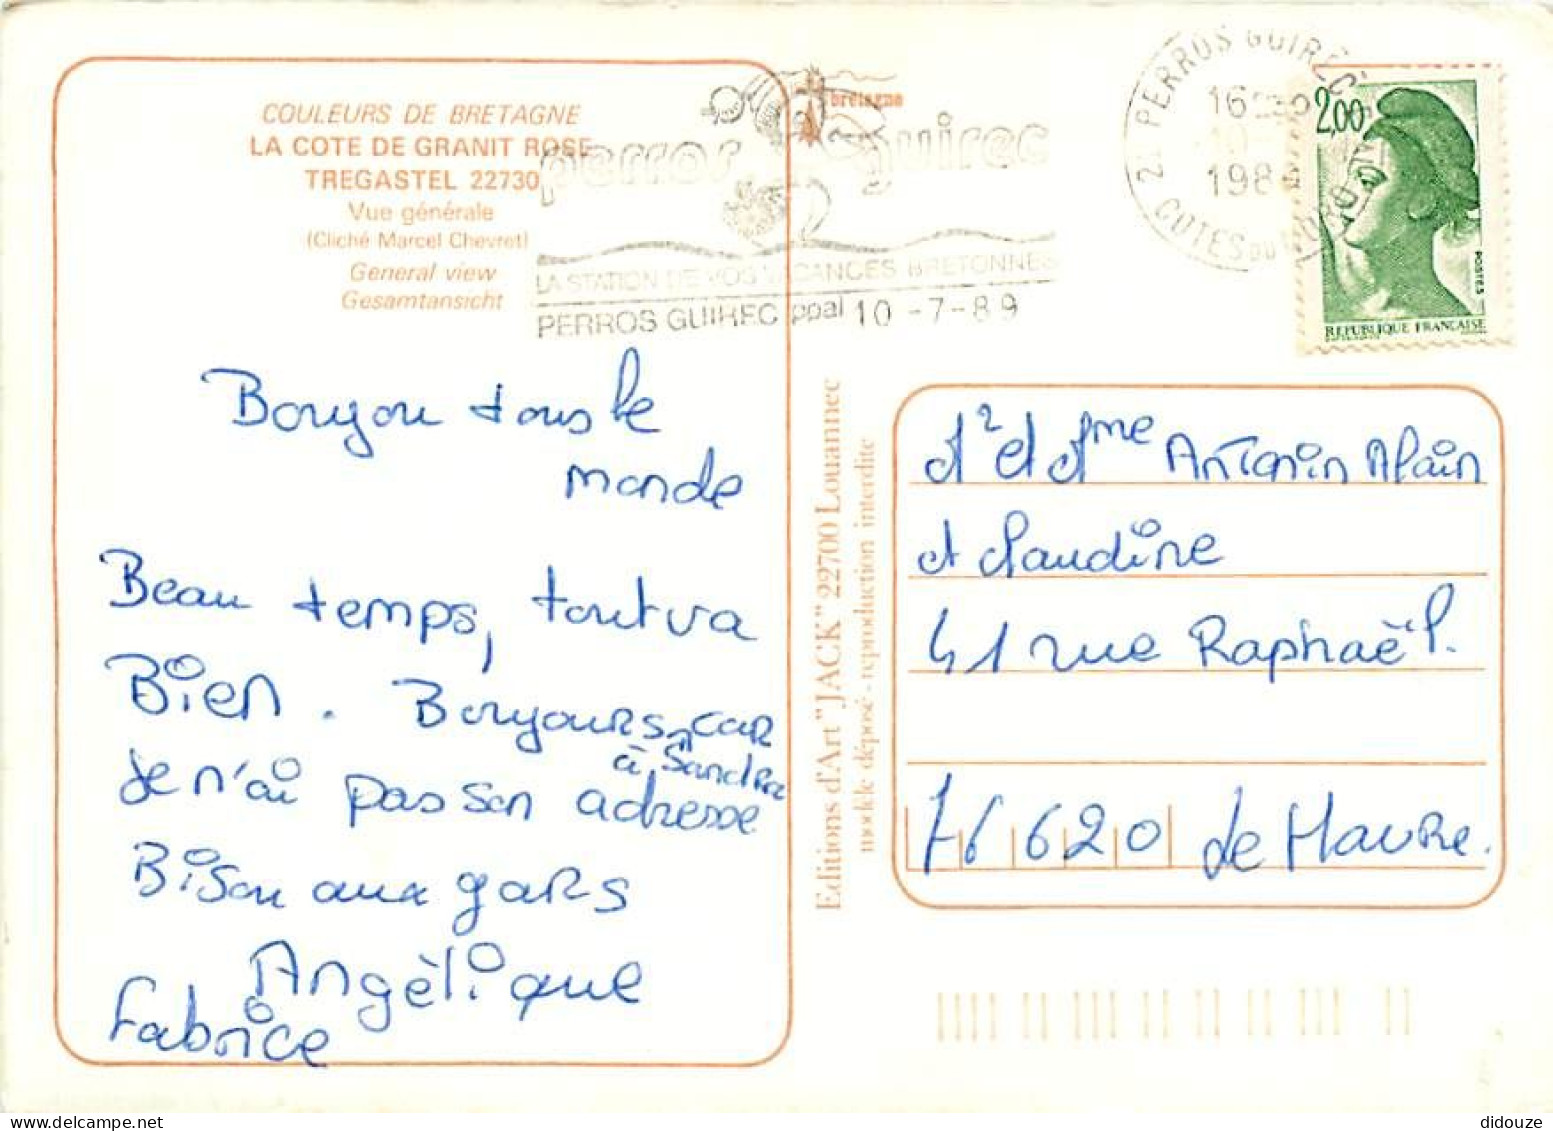 COULEURS DE BRETAGNE
LA COTE DE GRANIT ROSE
TREGASTEL 22730
Vue générale
(Cliché Marcel Chevret)
General view
Gesamtansicht
bretagne
perros guirec
LA STATION DE VOS VACANCES BRETONNES
PERROS GUIREC ppal 10 -7-89
PERROS GUIREC
16
198
COTES DU NORD
2,00
POSTES
REPUBLIQUE FRANÇAISE
Bonjou tous le
monde
Beau temps, tout va
Bien. Bonjours car
à Sandra
je n'ai pas son adresse
Bisou aux gars
Angèlique
Fabrice
Editions d'Art "JACK" 22700 Louannec
modèle déposé - reproduction interdite
Mr et Mme Antonin Alain
et Claudine
41 rue Raphaël.
76620 Le Havre.
didouze